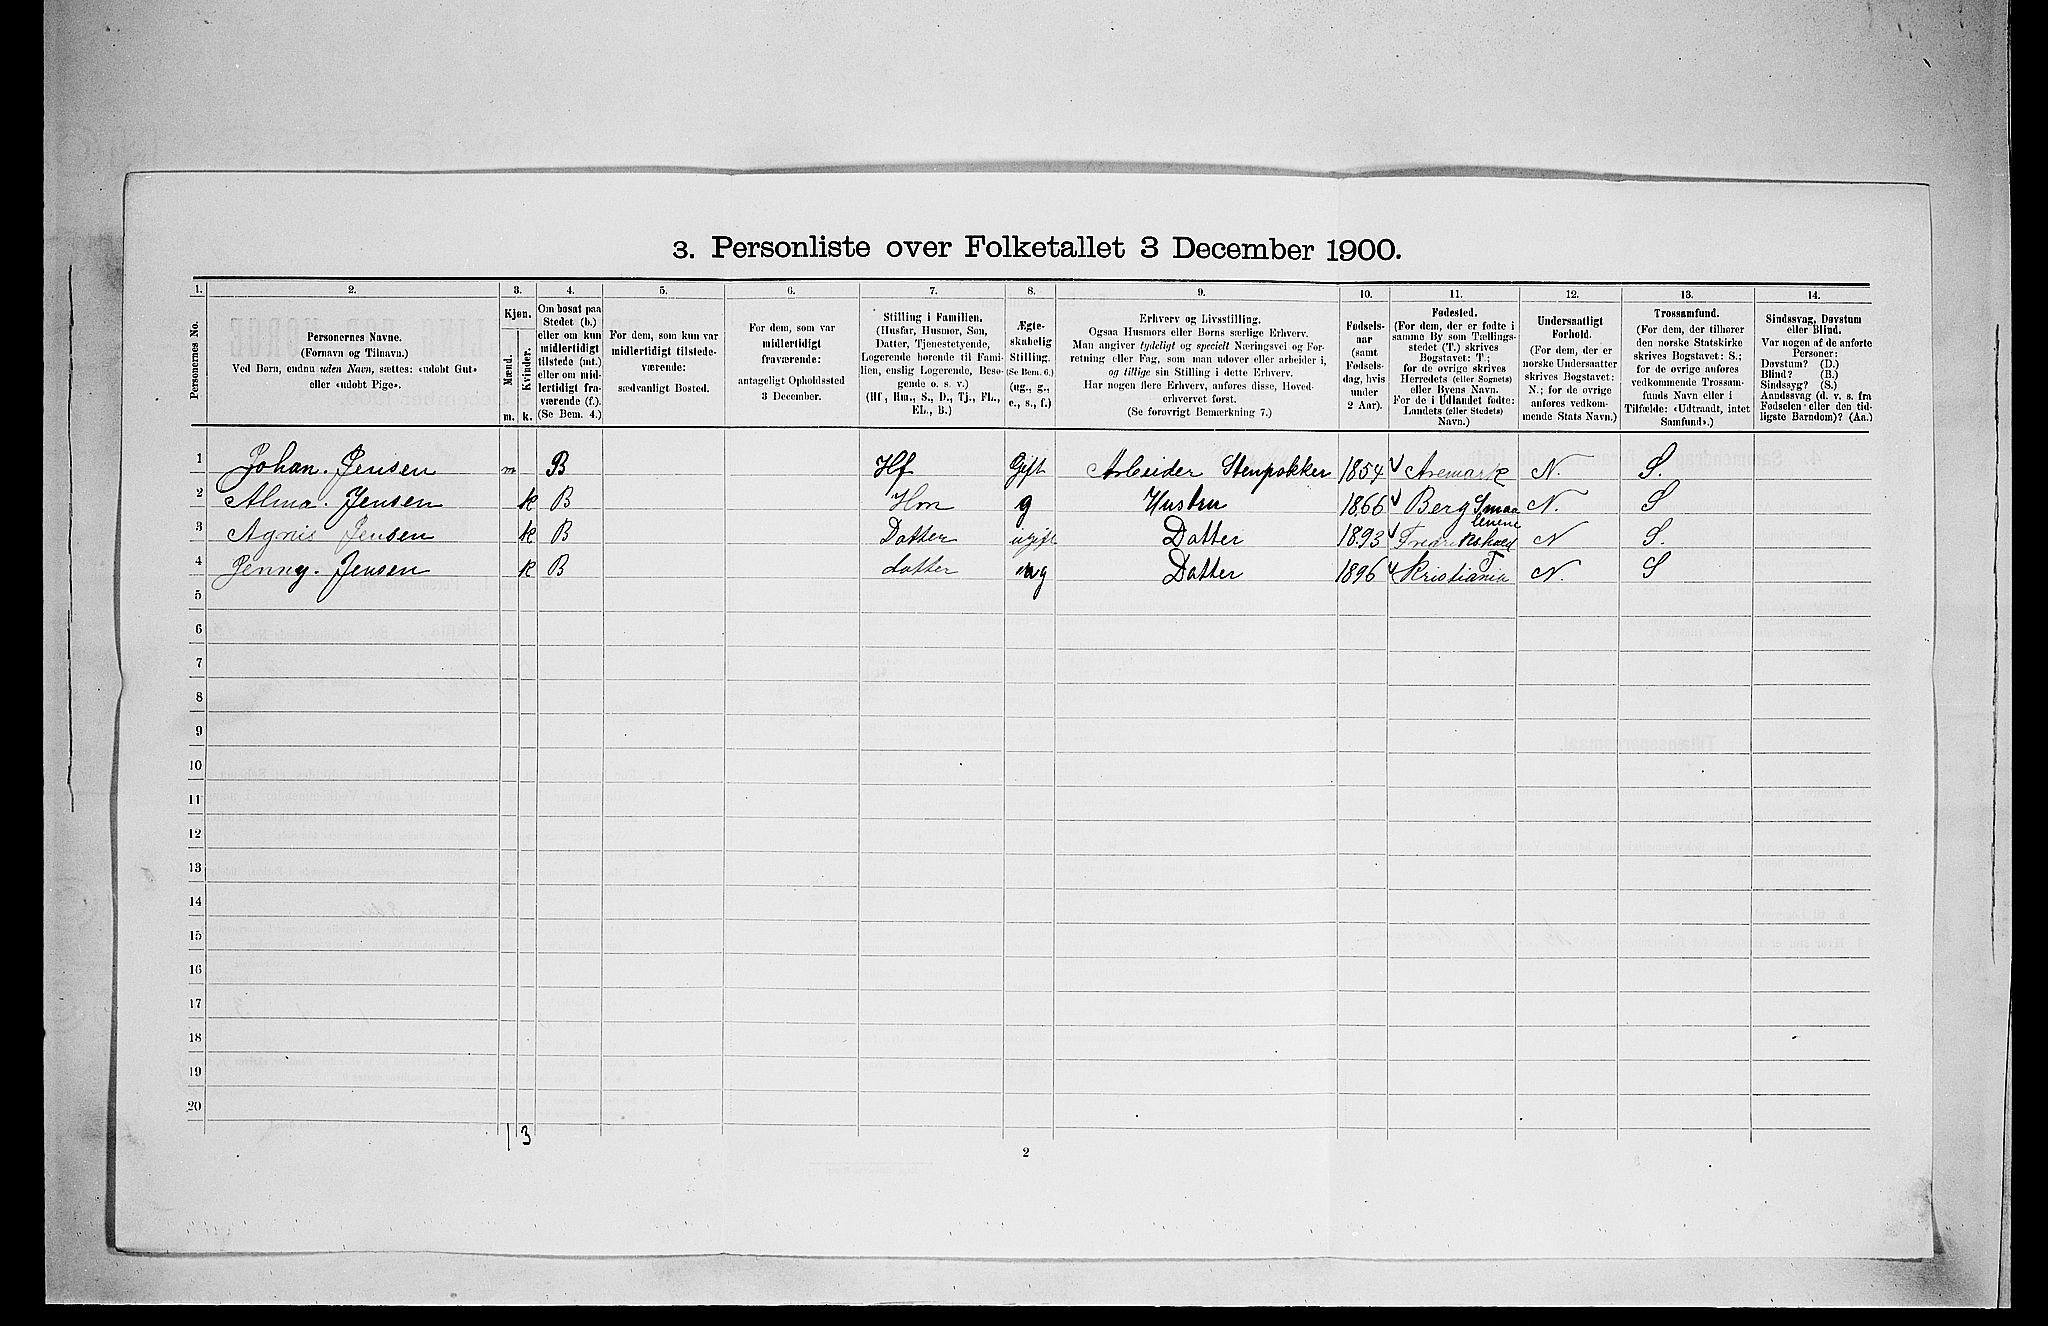 3. Personliste over Folketallet 3 December 1900.
1. 2. 3. 4. 5. 6. 7. 8. 9. 10. 11. 12. 13. 14.
Personernes No.
Personernes Navne.
(Fornavn og Tilnavn.)
Ved Børn, endnu uden Navn, sættes: «udøbt Gut»
eller «udøbt Pige».
Kjøn.
Mænd.
Kvinder.
m. k.
Om bosat paa
Stedet (b.)
eller om kun
midlertidigt
tilstede (mt.)
eller om mid-
lertidigt fra-
værende (f.).
(Se Bem. 4.)
For dem, som kun var
midlertidigt tilstede-
værende:
sædvanligt Bosted.
For dem, som var
midlertidigt
fraværende:
antageligt Opholdssted
3 December.
Stilling i Familien.
(Husfar, Husmor, Søn,
Datter, Tjenestetyende,
Logerende hørende til Fami-
lien, enslig Logerende, Besø-
gende o. s. v.)
(Hf, Hm., S., D., Tj., FL.,
EL., B.)
Ægte-
skabelig
Stilling.
(Se Bem. 6.)
(ug., g.,
e., s., f.)
Erhverv og Livsstilling.
Ogsaa Husmors eller Børns særlige Erhverv.
Man angiver tydeligt og specielt Næringsvei og For-
retning eller Fag, som man udøver eller arbeider i,
og tillige sin Stilling i dette Erhverv.
Har nogen flere Erhverv, anføres disse, Hoved-
erhvervet først.
(Se forøvrigt Bemærkning 7.)
Fødsels-
aar
(samt
Fødsels-
dag, hvis
under
2 Aar).
Fødested.
(For dem, der er fødte i
samme By som Tællings-
stedet (T.) skrives
Bogstavet: T.;
for de øvrige skrives
Herredets (eller Sognets)
eller Byens Navn.
For de i Udlandet fødte:
Landets (eller Stedets)
Navn.)
Undersaatligt
Forhold.
(For dem, der er
norske Undersaatter
skrives Bogstavet:
N.; for de øvrige
anføres vedkom-
mende Stats Navn.)
Trossamfund.
(For dem, der tilhører
den norske Statskirke
skrives Bogstavet: S.;
for de øvrige anføres
vedkommende Trossam-
funds Navn eller i
Tilfælde: «Udtraadt, intet
Samfund».)
Sindssvag, Døvstum
eller Blind.
Var nogen af de anførte
Personer:
Døvstum? (D.)
Blind? (B.)
Sindssyg? (S.)
Aandssvag (d. v. s. fra
Fødselen eller den tid-
ligste Barndom)? (Aa.)
1 Johan. Jensen m B Hf Gift Arbeider Stenpokker 1854 Aremark N. S.
2 Alma. Jensen k B Hm g Hustru 1866 Berg Smaa N. S
lenene
3 Agnis Jensen k B Datter ugift Datter 1893 Fredrikshald N S.
4 Jenny. Jensen k B datter ug Datter 1896 Kristiania T N. S
5
6
7
8
9
10
11
12
13
14
15
16
17
18
19
20
1 3
2